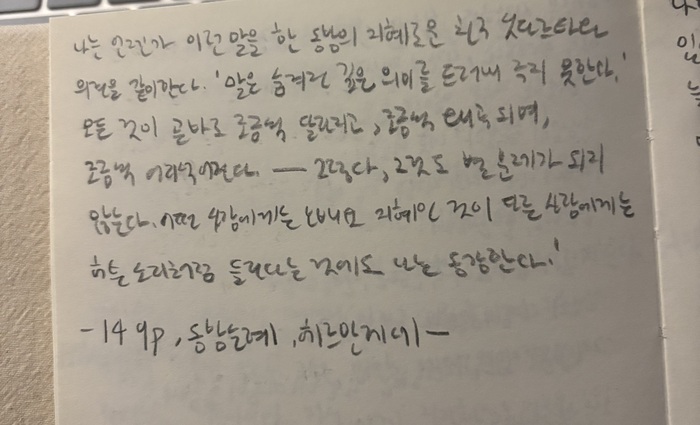 나는 언젠가 이런 말을 한 동방의 지혜로운 친구 낫다르타타
의견을 같이한다. '말은 숨겨진 깊은 의미를 드러내 주지 못한다.'
모든 것이 곧바로 조금씩 달라지고, 조금씩 왜곡되며,
조금씩 어리석어진다. — 그렇다, 그것도 별 문제가 되지
않는다. 어떤 사람에게는 보배요 지혜인 것이 다른 사람에게는
허튼 소리처럼 들린다는 것에도 나는 동감한다.'
- 149p, 동방순례, 헤르만헤세 —
일